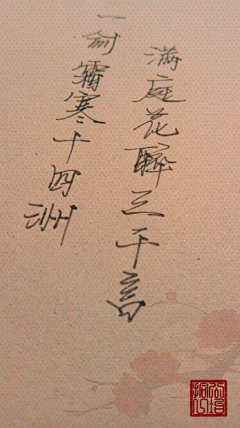 满庭花醉三千言
一剑霜寒十四洲